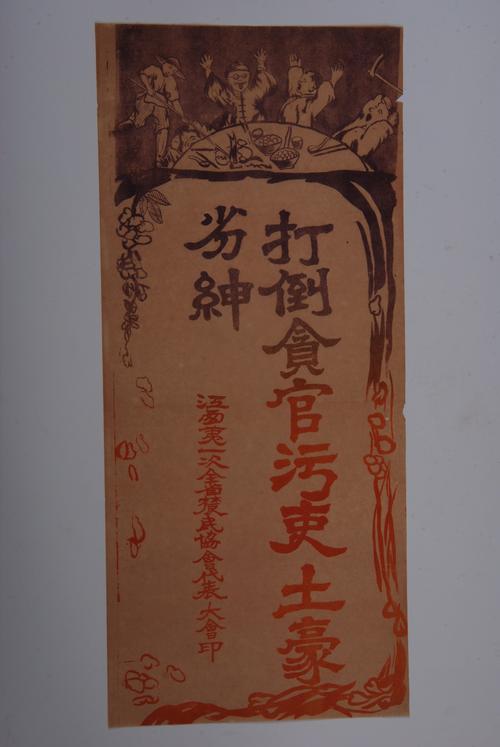 打倒貪官污吏土豪
劣紳
江西第一次全省農民協會代表大會印